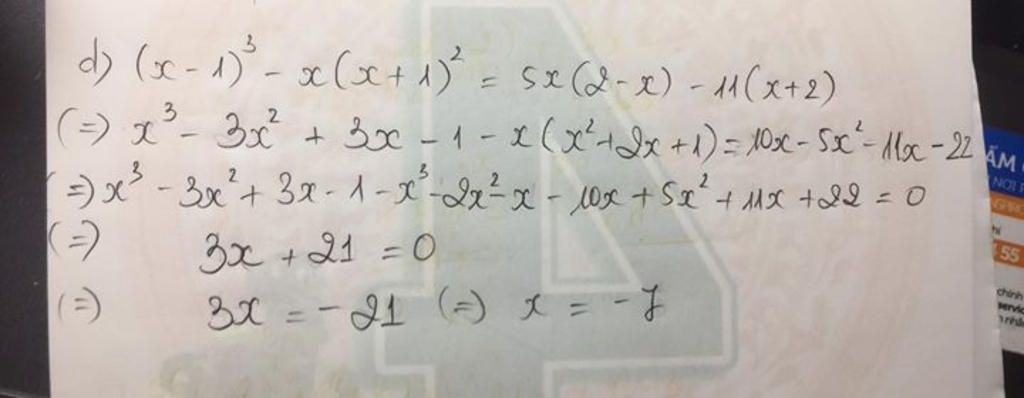 d) (x - 1)³ - x(x + 1)² = 5x(2 - x) - 11(x+2)
(=) x³ - 3x² + 3x - 1 - x(x²+2x+1) = 10x - 5x² - 11x - 22
(=) x³ - 3x² + 3x - 1 - x³ - 2x² - x - 10x + 5x² + 11x + 22 = 0
(=) 3x + 21 = 0
(=) 3x = -21 (=) x = -7
55